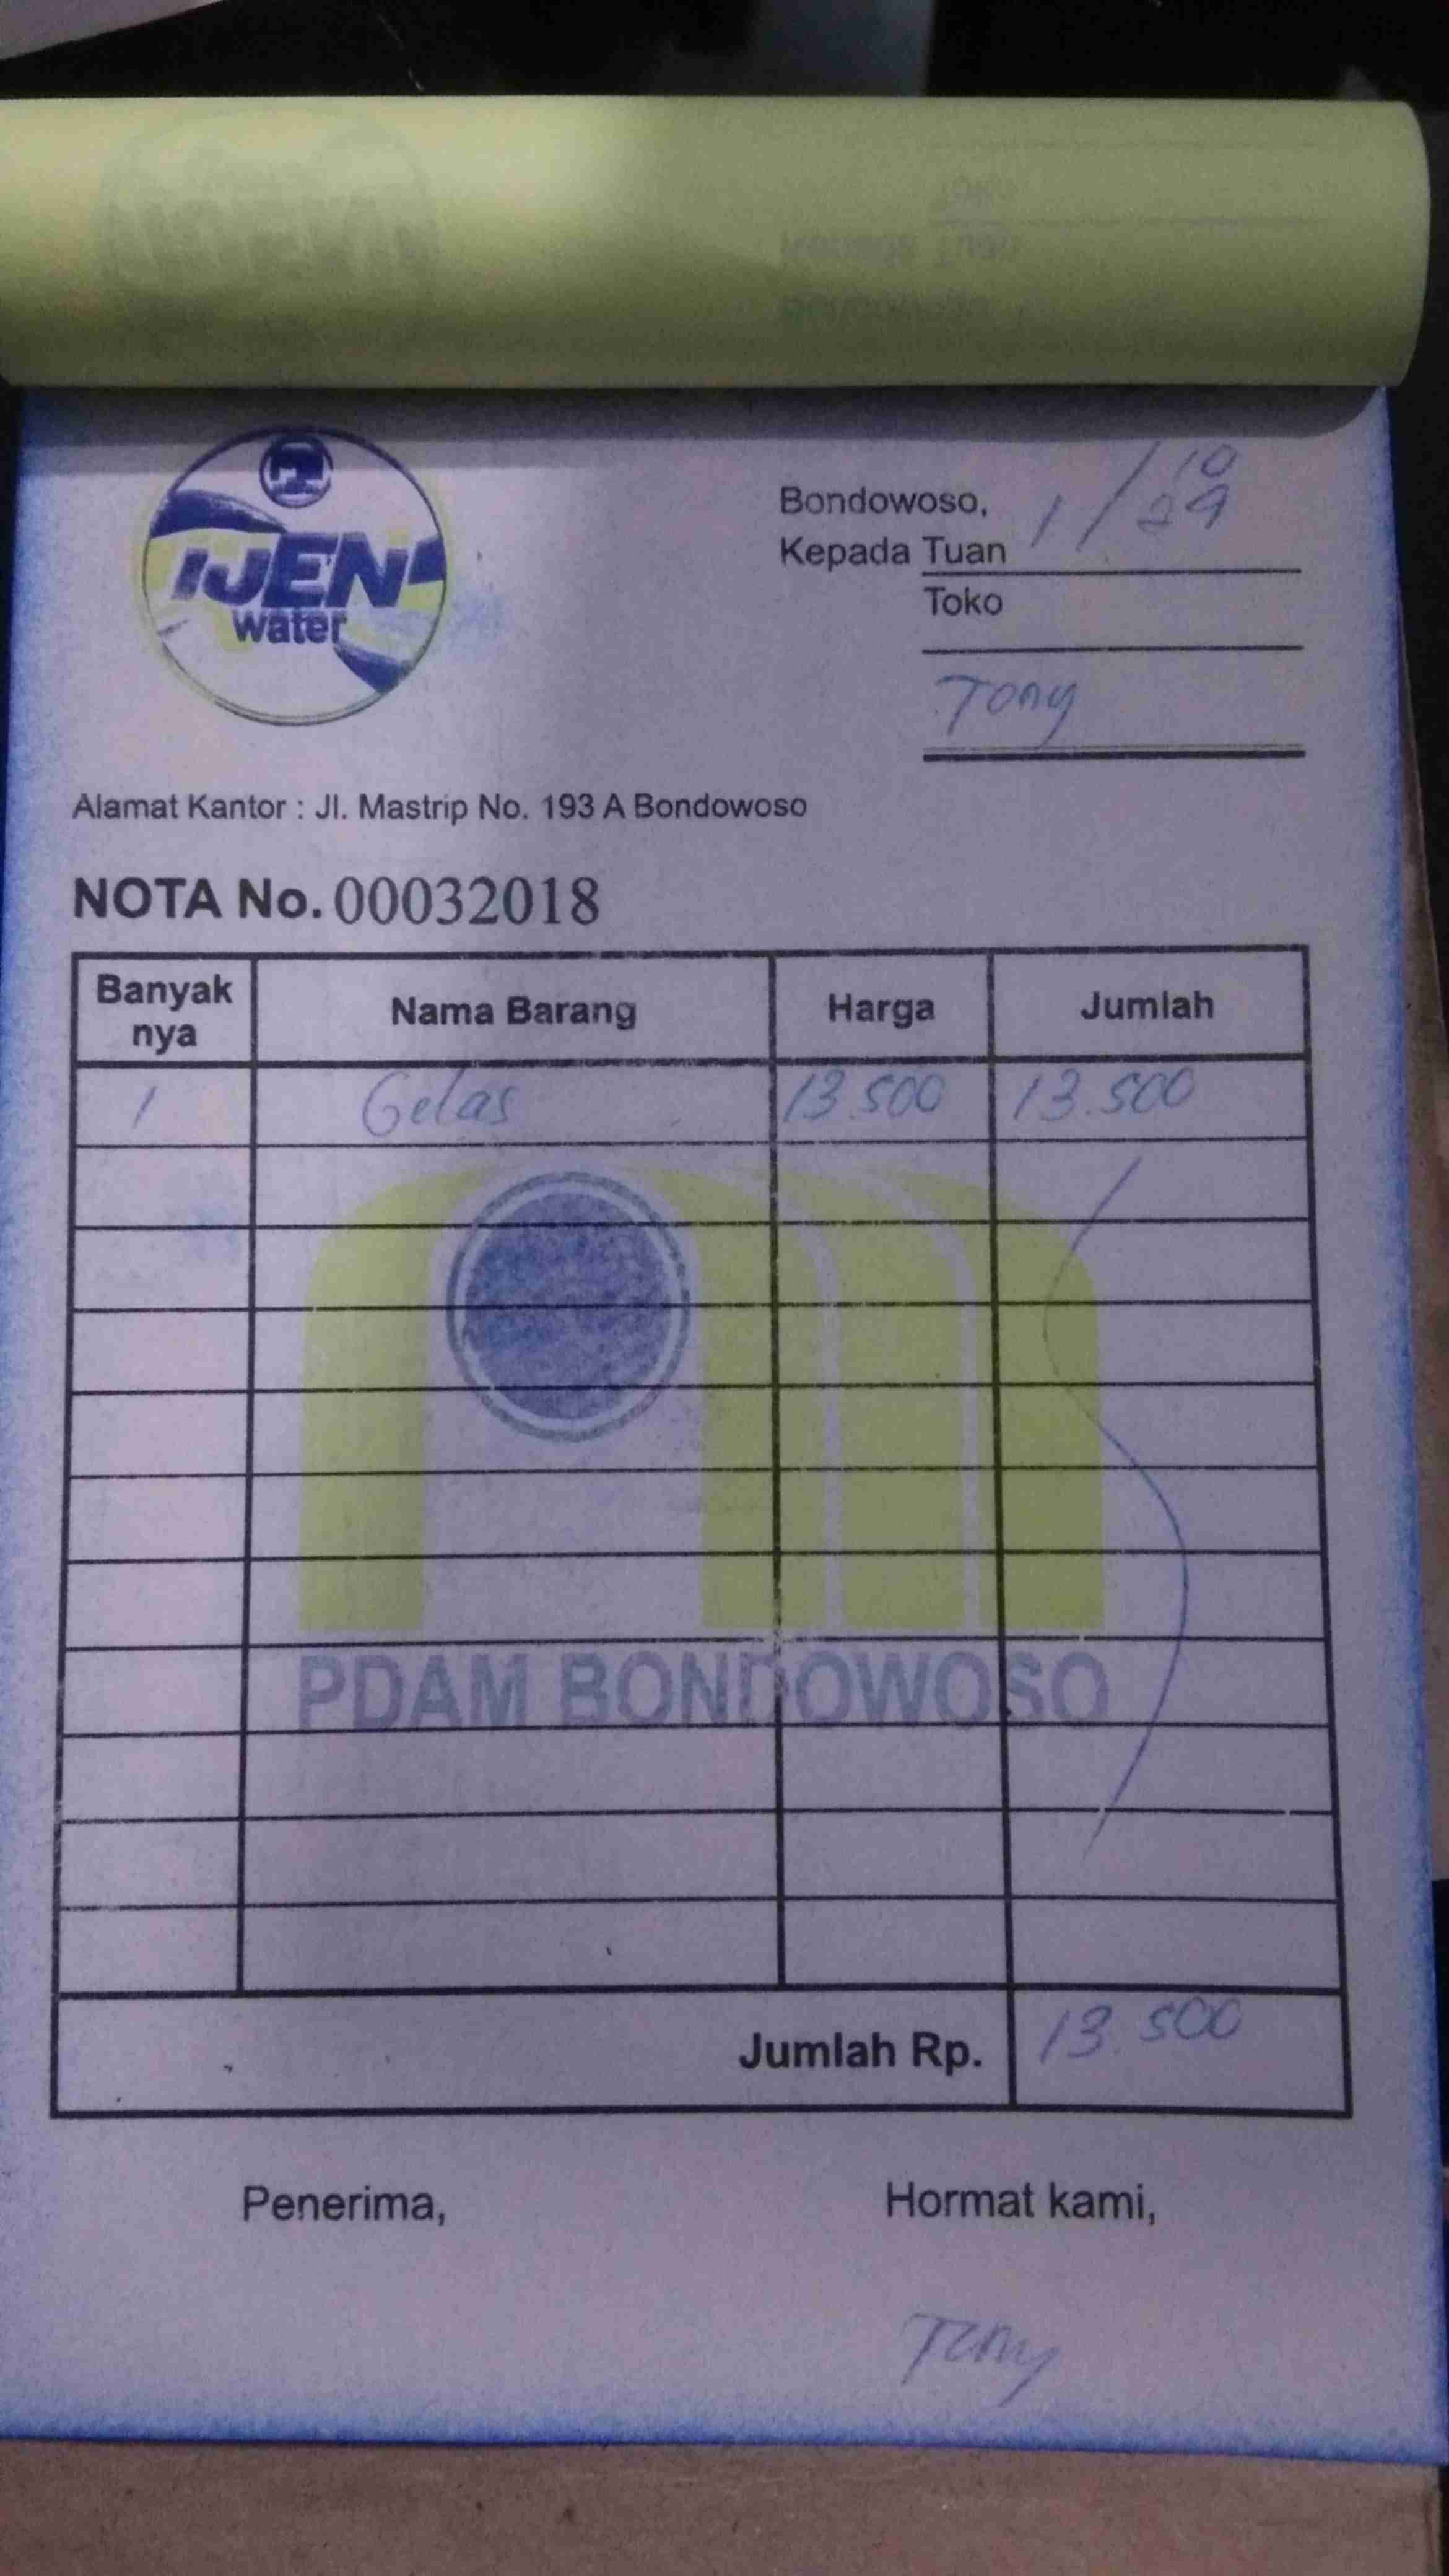 IJEN
water
Bondowoso, 1/10
Kepada Tuan
Toko
Tony
Alamat Kantor : Jl. Mastrip No. 193 A Bondowoso
NOTA No. 00032018
Banyak nya Nama Barang Harga Jumlah
1 Gelas 13.500 13.500
PDAM BONDOWOSO
Jumlah Rp. 13.500
Penerima, Hormat kami,
Tony